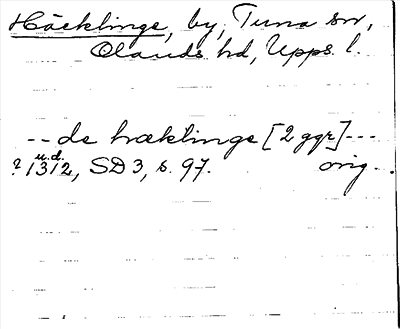 Häcklinge, by, Tuna sn,
Olands hd, Upps. l.
-- de hræklinge [2 ggr] ---
? u.d. 1312, SD 3, s. 97. orig.